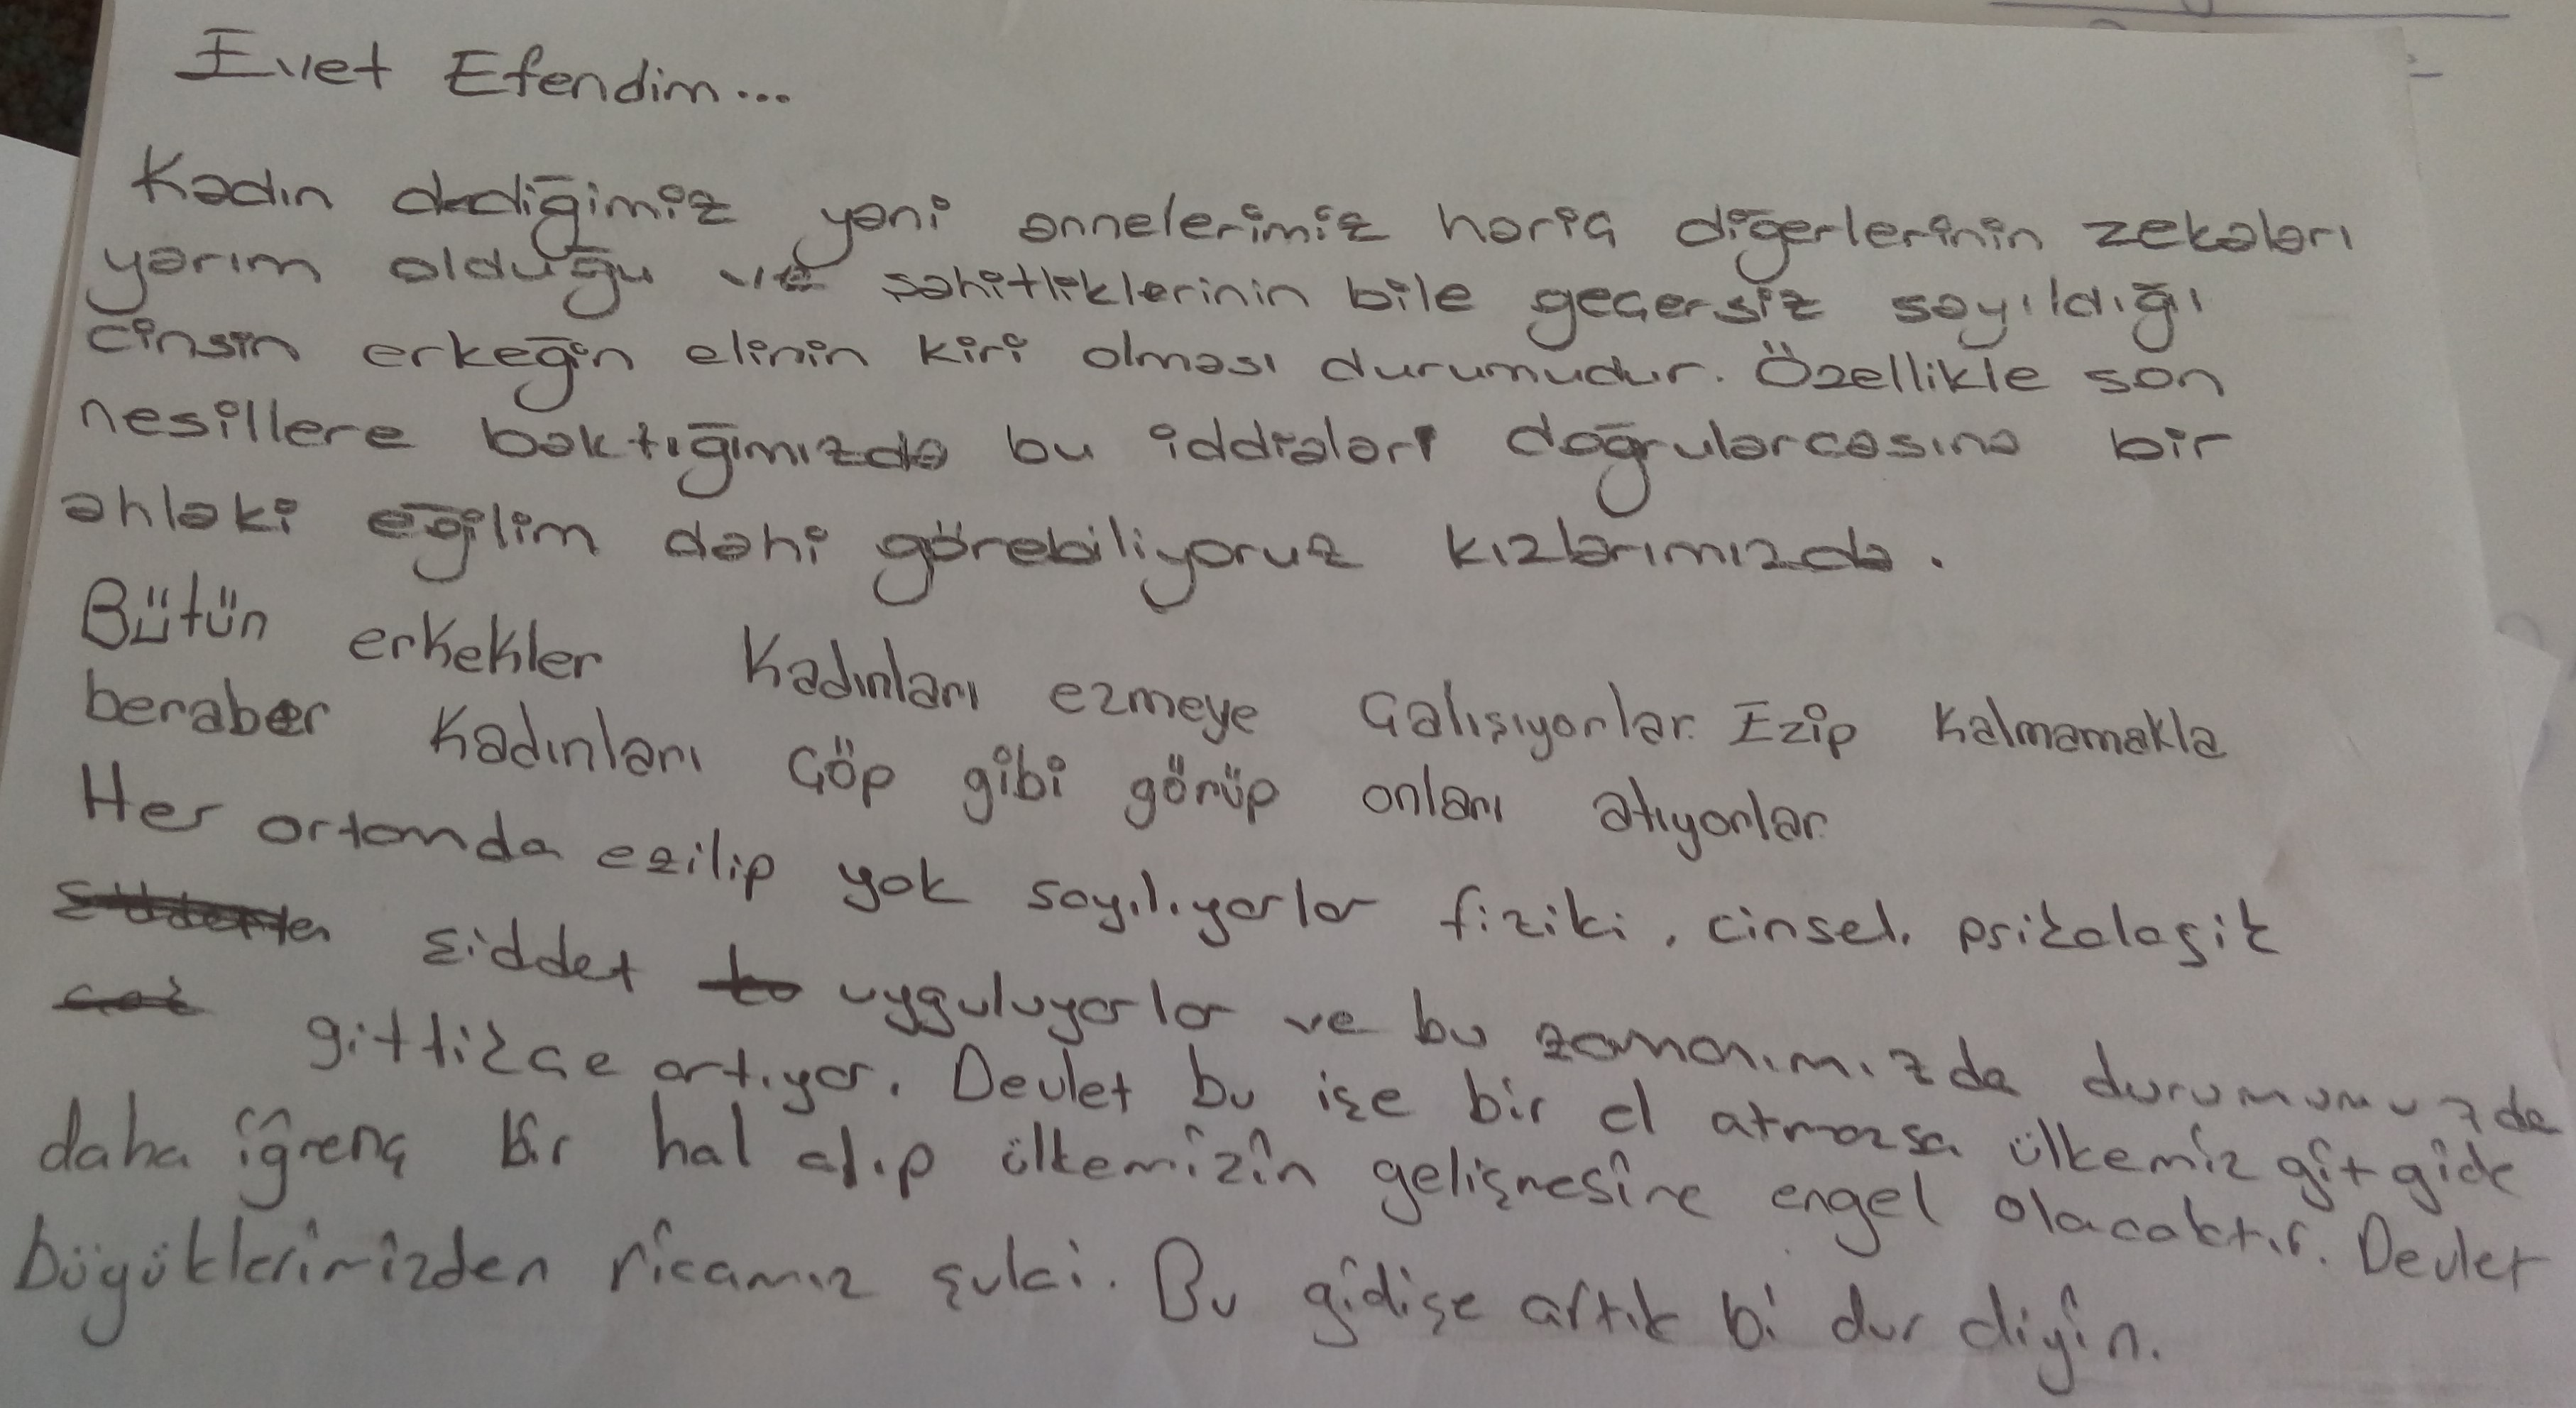 Evet Efendim...
Kadın dediğimiz yani annelerimiz hariç diğerlerinin zekaları
yarım olduğu ve şahitliklerinin bile geçersiz sayıldığı
cinsin erkeğin elinin kiri olması durumudur. Özellikle son
nesillere baktığımızda bu iddiaları doğrularcasına bir
ahlaki eğilim dahi görebiliyoruz kızlarımızda.
Bütün erkekler kadınları ezmeye çalışıyorlar. Ezip kalmamakla
beraber kadınları çöp gibi görüp onları atıyorlar
Her ortamda ezilip yok sayılıyorlar fiziki, cinsel, psikolojik
şiddet uyguluyorlar ve bu zamanımızda durumumuzda
gittikçe artıyor. Devlet bu işe bir el atmazsa ülkemiz git gide
daha iğrenç bir hal alıp ülkemizin gelişmesine engel olacaktır. Devlet
büyüklerimizden ricamız şuki. Bu gidişe artık bi dur diyin.